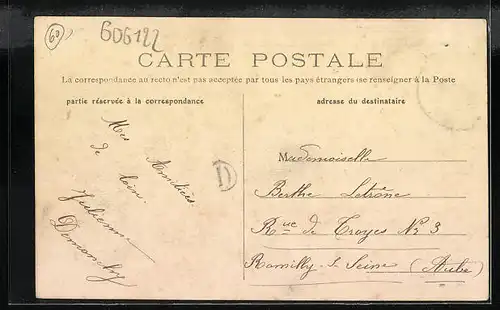 60
606122
CARTE POSTALE
La correspondance au recto n'est pas acceptée par tous les pays étrangers (se renseigner à la Poste
partie réservée à la correspondance
adresse du destinataire
Mes Amitiés
de loin
Julienne
Demonchy
D
Mademoiselle
Berthe Letrône
Rue de Troyes No 3
Romilly-s-Seine (Aube)